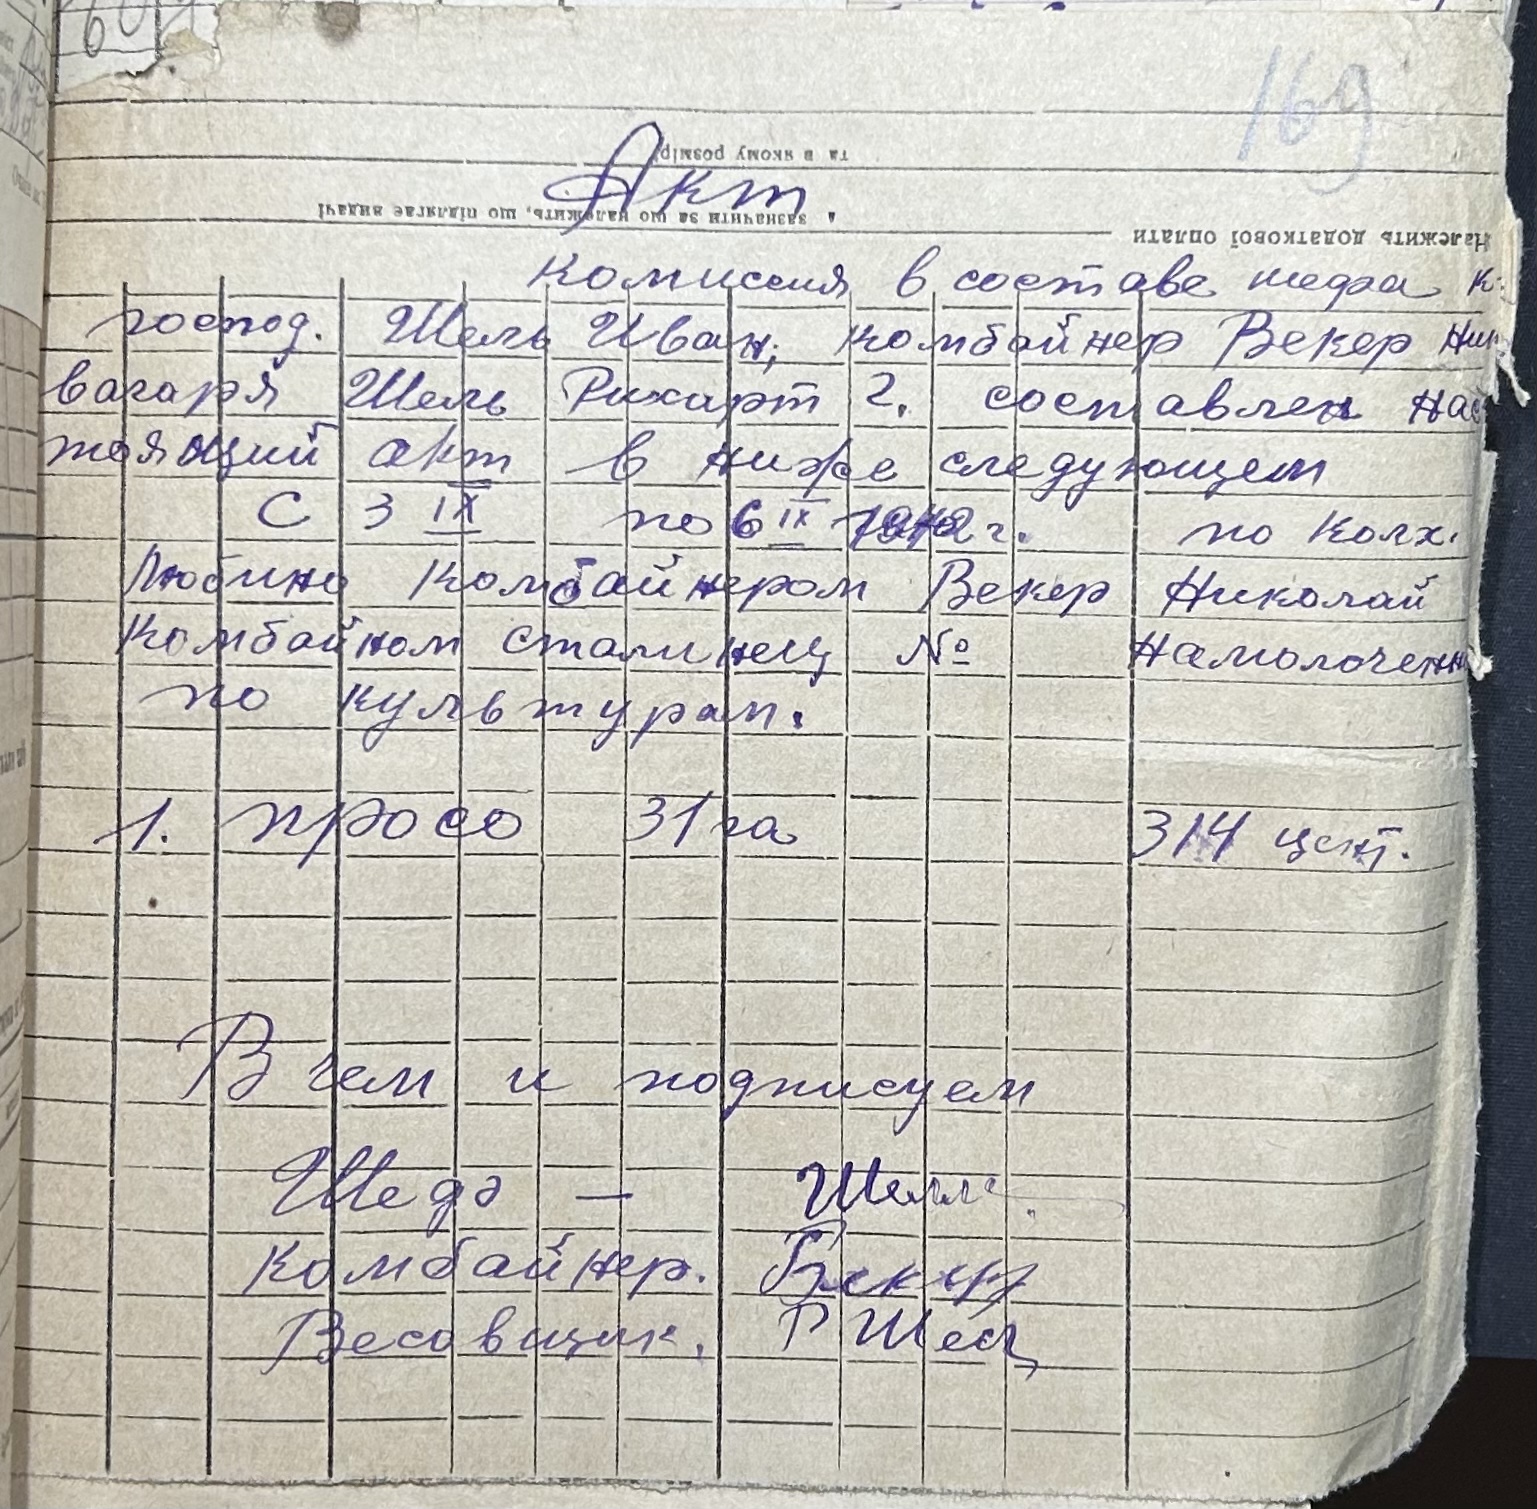 169
та в якому розмірі
Акт
зазначити за що належить, що підлягає видачі
Належить додаткової оплати
Комиссия в составе шефа к.
господ. Шель Иван, комбайнер Векер Ник
вагаря Шель Рихарт Г. составлен нас
тоящий акт в ниже следующем
С 3 IX по 6 IX 1942 г. по Колх.
Любино Комбайнером Векер Николай
Комбайном сталинец № намолоченно
по культурам.
1. просо 31 га 314 цент.
В чем и подписуем
Шеф — Шель
Комбайнер. Векер
Весовщик. Р Шель